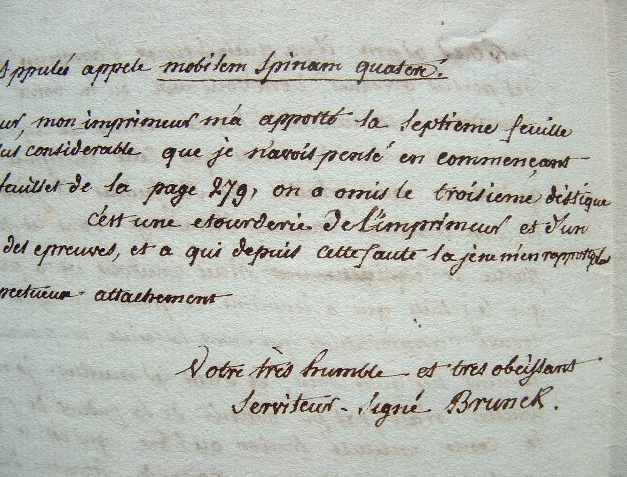 Appulée appele mobilem spinam quatere.
mon imprimeur m'a apporté la septieme feuille
considerable que je n'avois pensé en commençant
feuillet de la page 279, on a omis le troisieme distique
c'est une etourderie de l'imprimeur et d'un
des epreuves, et a qui depuis cette faute la je ne m'en rapporte plus
attachement
Votre très humble et tres obeissant
Serviteur - Signé Brunck.